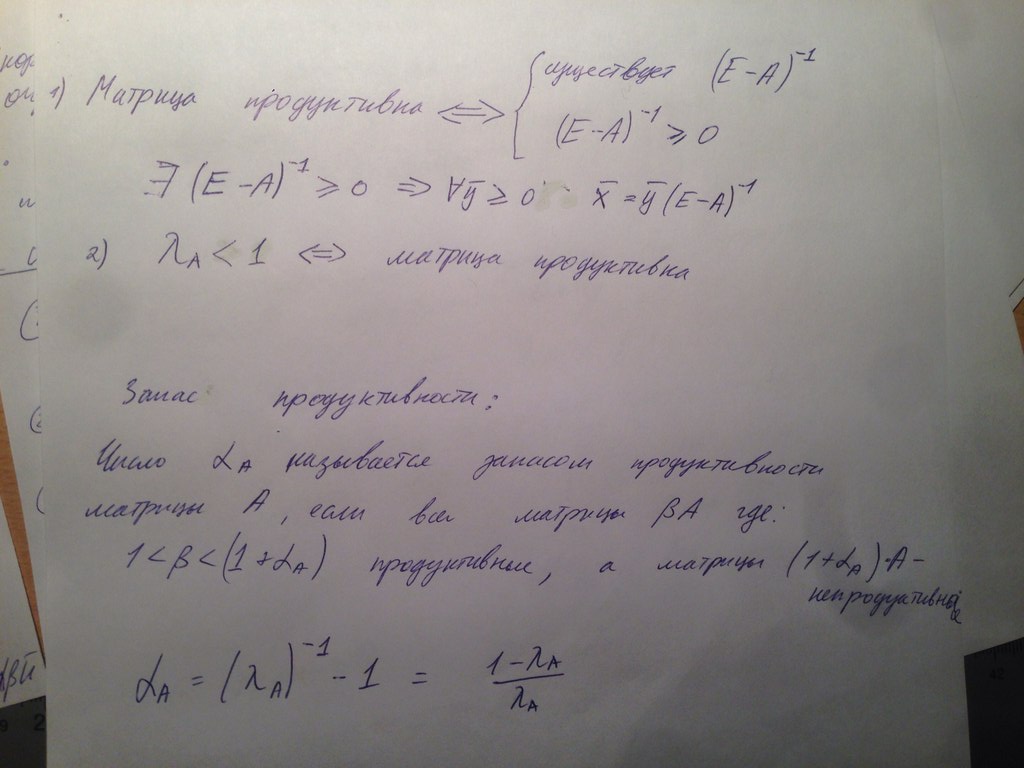 1) Матрица продуктивна ⟺ { существует (E-A)⁻¹
(E-A)⁻¹ ≥ 0
∃ (E-A)⁻¹ ≥ 0 ⇒ ∀ȳ ≥ 0 x̄ = ȳ(E-A)⁻¹
2) λ_A < 1 ⟺ матрица продуктивна
Запас продуктивности:
Число α_A называется запасом продуктивности
матрицы A, если все матрицы βA где:
1 < β < (1+α_A) продуктивные, а матрицы (1+α_A)·A -
непродуктивные
α_A = (λ_A)⁻¹ - 1 = (1-λ_A)/λ_A